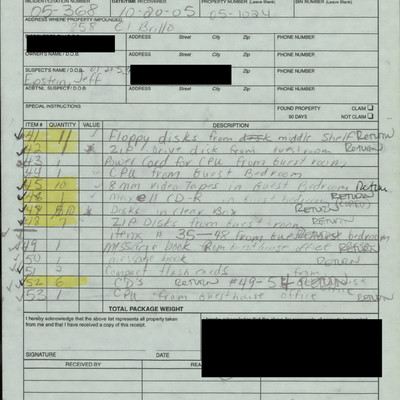 INCIDENT/CITATION NUMBER DATE/TIME RECOVERED PROPERTY NUMBER (Leave Blank) BIN NUMBER (Leave Blank)
05-368 10-20-05 05-1024
ADDRESS WHERE PROPERTY IMPOUNDED
358 El Brillo
ADDRESS Street City Zip PHONE NUMBER
OWNER'S NAME / D.O.B. ADDRESS Street City Zip PHONE NUMBER
SUSPECT'S NAME / D.O.B. ADDRESS Street City Zip PHONE NUMBER
Epstein, Jeff
ADBTNL SUSPECT / D.O.B. ADDRESS Street City Zip PHONE NUMBER
SPECIAL INSTRUCTIONS FOUND PROPERTY CLAIM
90 DAYS NOT CLAIM
ITEM # QUANTITY VALUE DESCRIPTION
41 11 Floppy disks from desk middle shelf RETURN
42 1 ZIP Drive disk from guestroom RETURN
43 1 Power Cord for CPU from Guest room
44 1 CPU from Guest Bedroom
45 10 8mm video Tapes in Guest Bedroom Return
CD-R in guest bedroom RETURN
Disks in Clear Box RETURN
7 ZIP Disks from Guest room RETURN
items # 35-48 from Guest bedroom
49 1 message book from guesthouse office RETURN
50 1 message book RETURN
51 2 Compact flash cards from
52 6 CD's RETURN #49-54
53 1 CPU from guesthouse office RETURN
TOTAL PACKAGE WEIGHT
I hereby acknowledge that the above list represents all property taken
from me and that I have received a copy of this receipt.
SIGNATURE DATE
RECEIVED BY REA